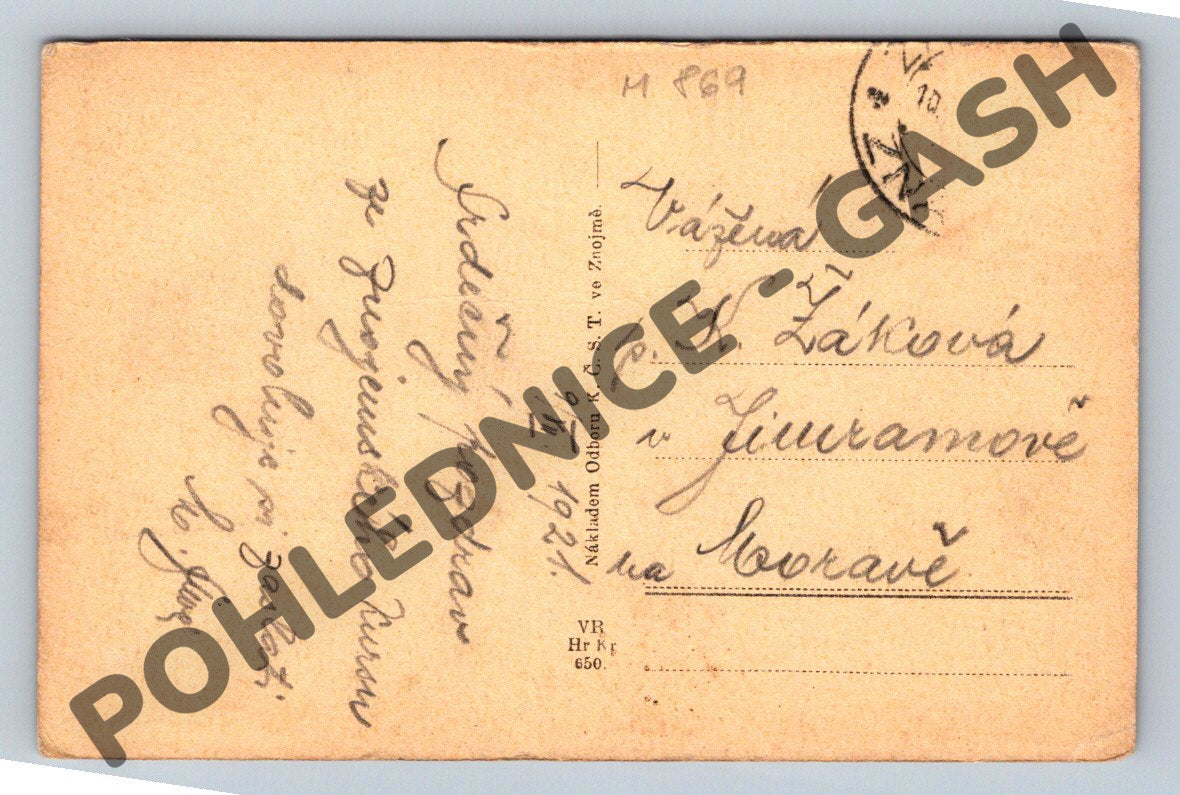 M 869
Z N
10
Srdečný pozdrav
ze Znojemského kursu
dovoluje si zaslat
Fr.
9/III 1921.
Nákladem Odboru K. Č. S. T. ve Znojmě.
VR
Hr Kr
650.
Vážená
Sl.
p. K. Žáková
v Jimramově
na Moravě
POHLEDNICE - GASH